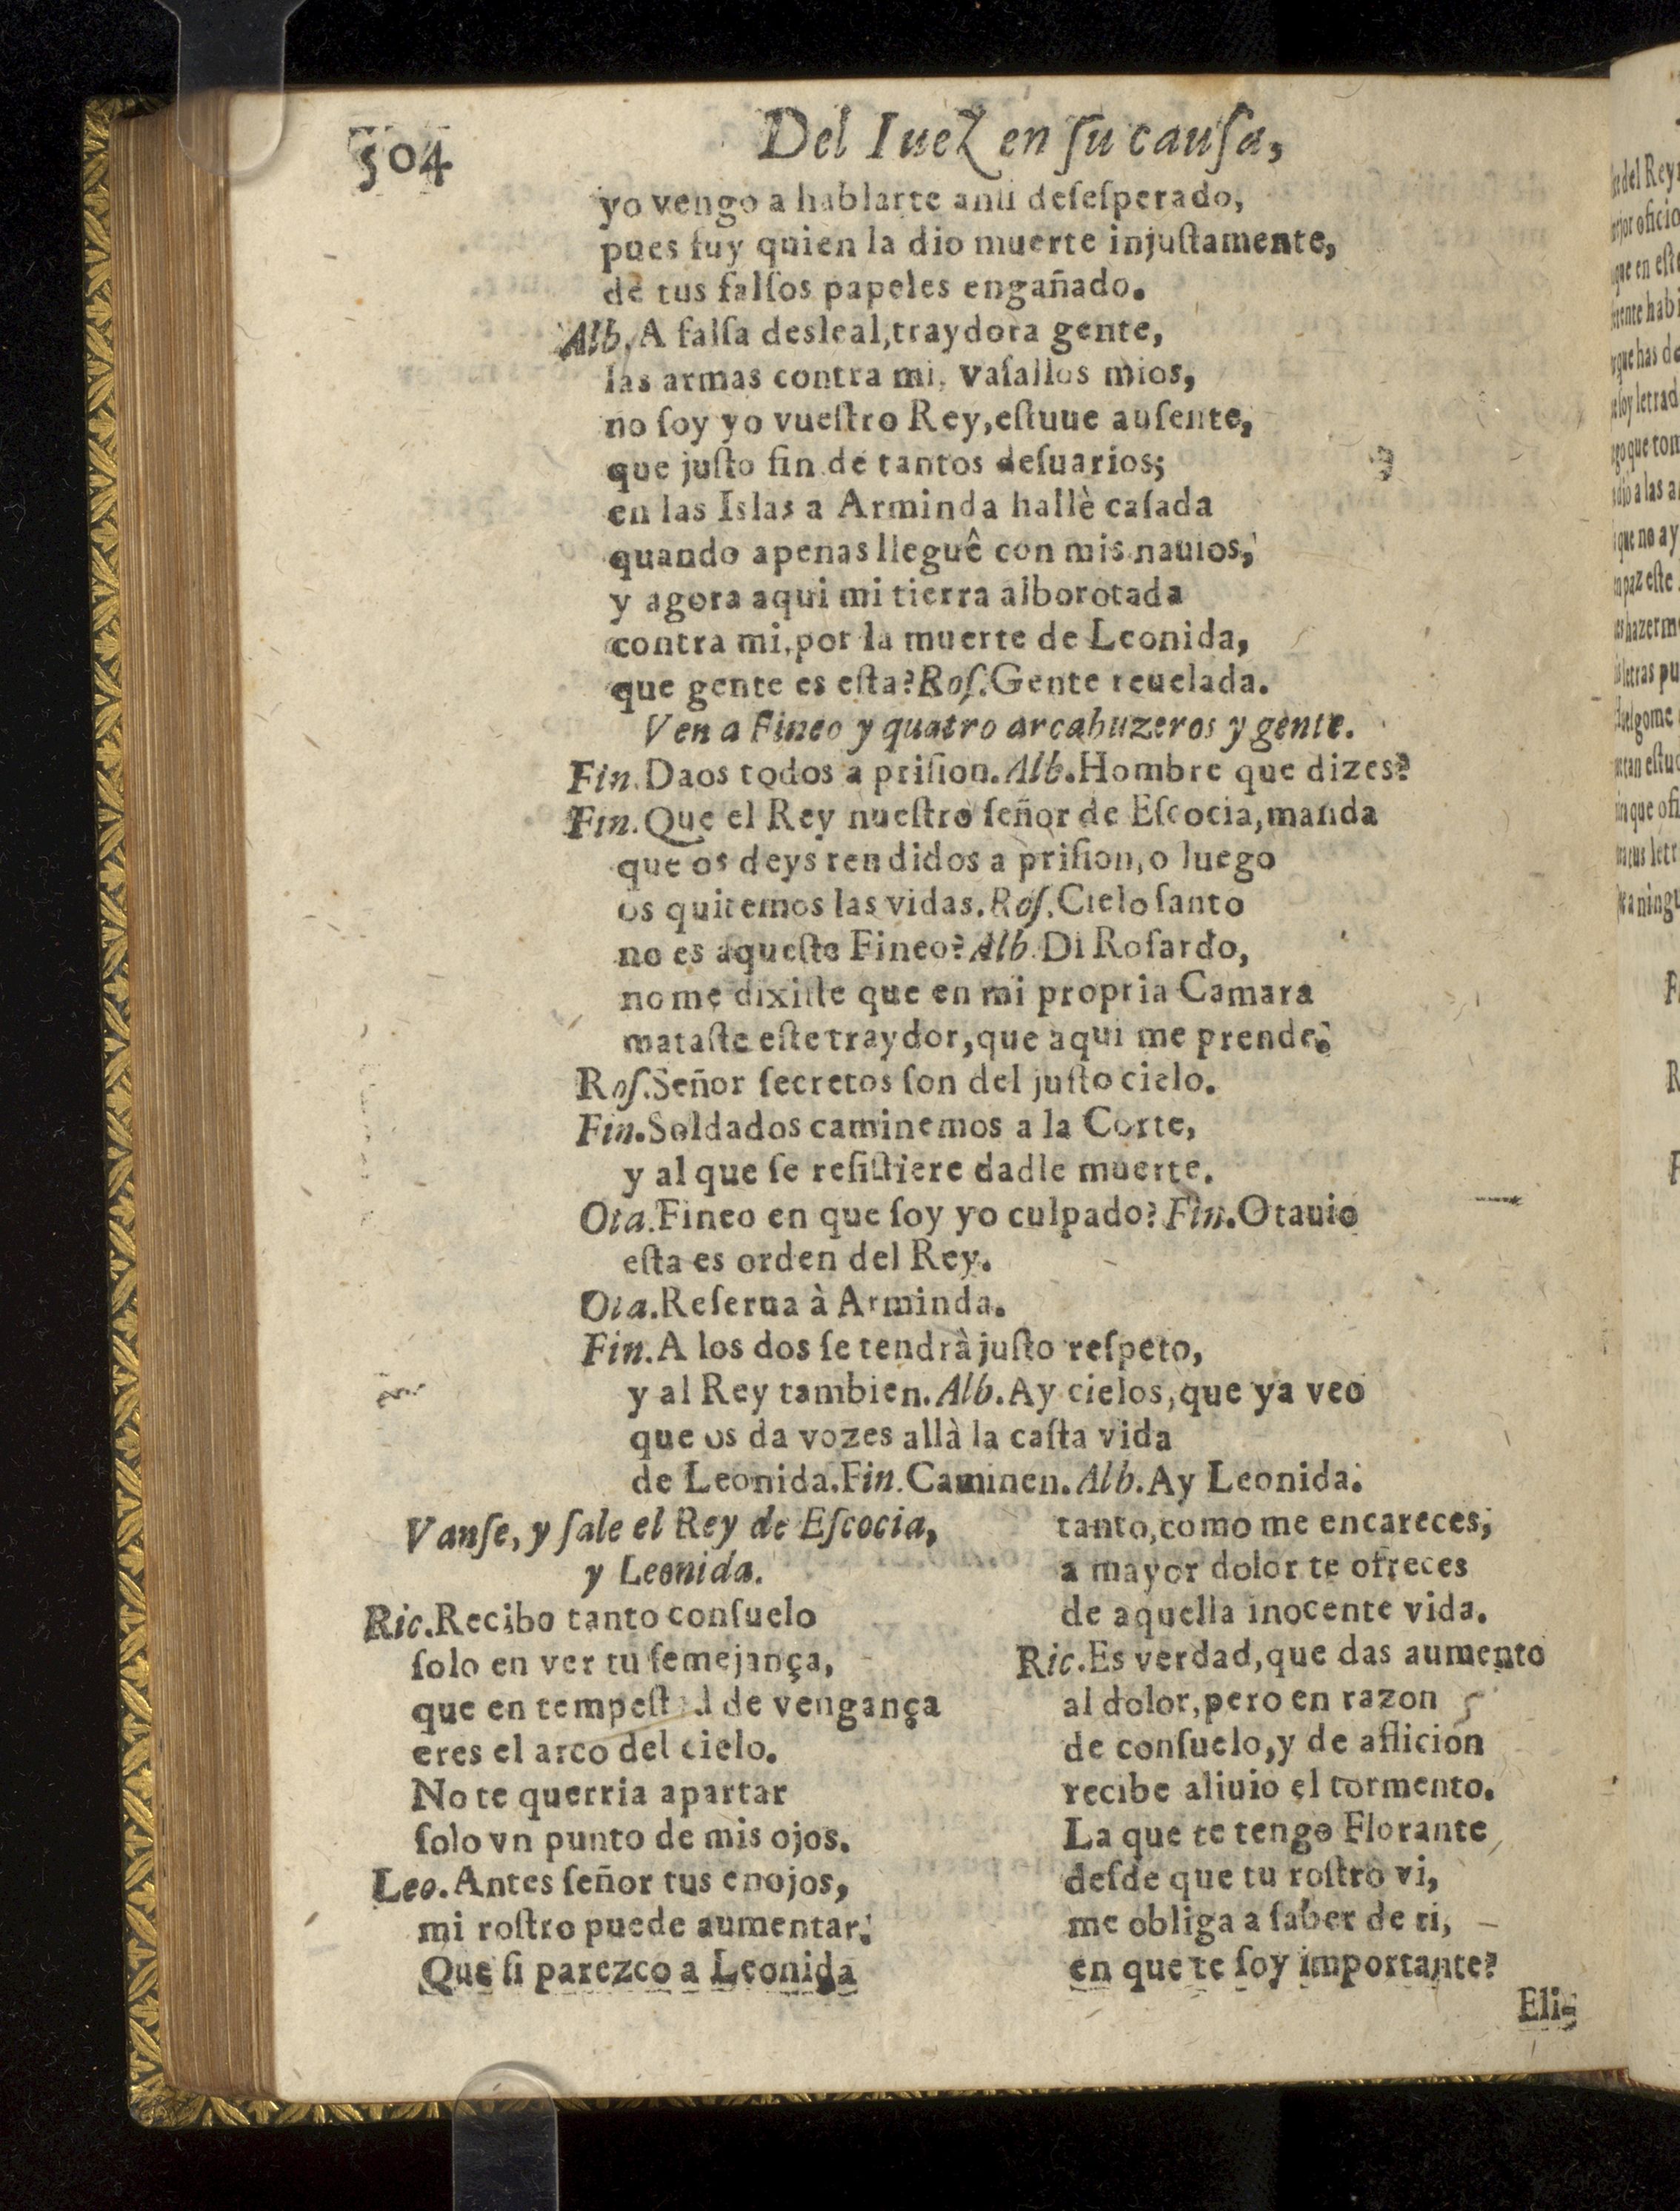 504
Del Iuez en ſu cauſa,
yo vengo a hablarte anſi deſeſperado,
pues fuy quien la dio muerte injuſtamente,
de tus falſos papeles engañado.
Alb. A falſa desleal, traydora gente,
las armas contra mi, vaſallos mios,
no ſoy yo vueſtro Rey, eſtuue auſente,
que juſto fin de tantos deſuarios;
en las Islas a Arminda hallè caſada
quando apenas lleguê con mis nauios,
y agora aqui mi tierra alborotada
contra mi, por la muerte de Leonida,
que gente es eſta? Roſ. Gente reuelada.
Ven a Fineo y quatro arcabuzeros y gente.
Fin. Daos todos a priſion. Alb. Hombre que dizes?
Fin. Que el Rey nueſtro ſeñor de Eſcocia, manda
que os deys rendidos a priſion, o luego
os quitemos las vidas. Roſ. Cielo ſanto
no es aqueſte Fineo? Alb. Di Roſardo,
no me dixiſte que en mi propria Camara
mataſte eſte traydor, que aqui me prende.
Roſ. Señor ſecretos ſon del juſto cielo.
Fin. Soldados caminemos a la Corte,
y al que ſe reſiſtiere dadle muerte.
Ota. Fineo en que ſoy yo culpado? Fin. Otauio
eſta es orden del Rey.
Ota. Reſerua à Arminda.
Fin. A los dos ſe tendrà juſto reſpeto,
y al Rey tambien. Alb. Ay cielos, que ya veo
que os da vozes allà la caſta vida
de Leonida. Fin. Caminen. Alb. Ay Leonida.
Vanſe, y ſale el Rey de Eſcocia,
y Leonida.
Ric. Recibo tanto conſuelo
ſolo en ver tu ſemejança,
que en tempeſtad de vengança
eres el arco del cielo.
No te querria apartar
ſolo vn punto de mis ojos.
Leo. Antes ſeñor tus enojos,
mi roſtro puede aumentar.
Que ſi parezco a Leonida
tanto, como me encareces,
a mayor dolor te ofreces
de aquella inocente vida.
Ric. Es verdad, que das aumento
al dolor, pero en razon
de conſuelo, y de aflicion
recibe aliuio el tormento.
La que te tengo Florante
deſde que tu roſtro vi,
me obliga a ſaber de ti,
en que te ſoy importante?
Eli-